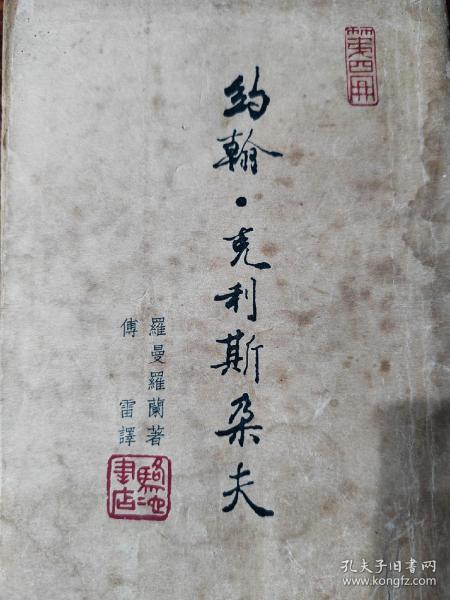 第四冊
約翰·克利斯朵夫
羅曼羅蘭著
傅雷譯
駱駝書店
孔夫子旧书网
www.kongfz.com